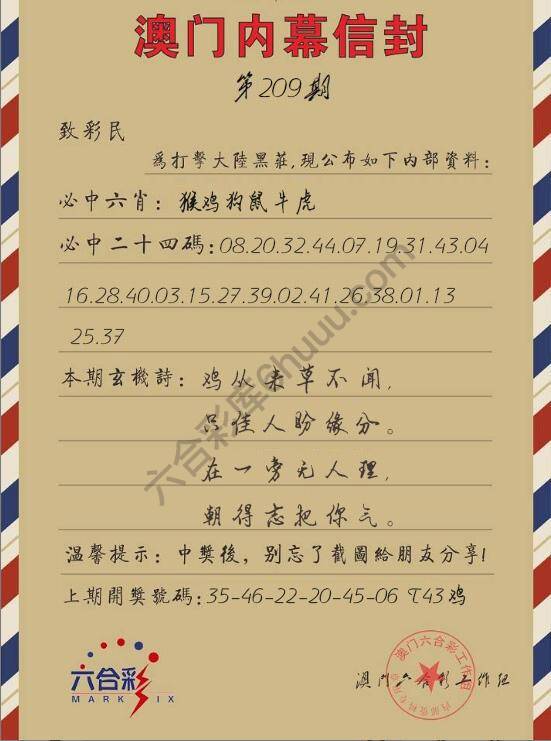 澳门内幕信封
第209期
致彩民
為打擊大陸黑莊,現公布如下内部資料:
必中六肖: 猴鸡狗鼠牛虎
必中二十四碼:08.20.32.44.07.19.31.43.04
16.28.40.03.15.27.39.02.41.26.38.01.13
25.37
本期玄機詩: 鸡从来草不闻,
只佳人盼缘分。
在一旁无人理,
朝得忘把你气。
温馨提示: 中獎後, 别忘了截圖給朋友分享!
上期開獎號碼:35-46-22-20-45-06 T43鸡
六合彩
MARK SIX
澳门六合彩工作组
澳门六合彩工作组
六合彩库6huuu.com